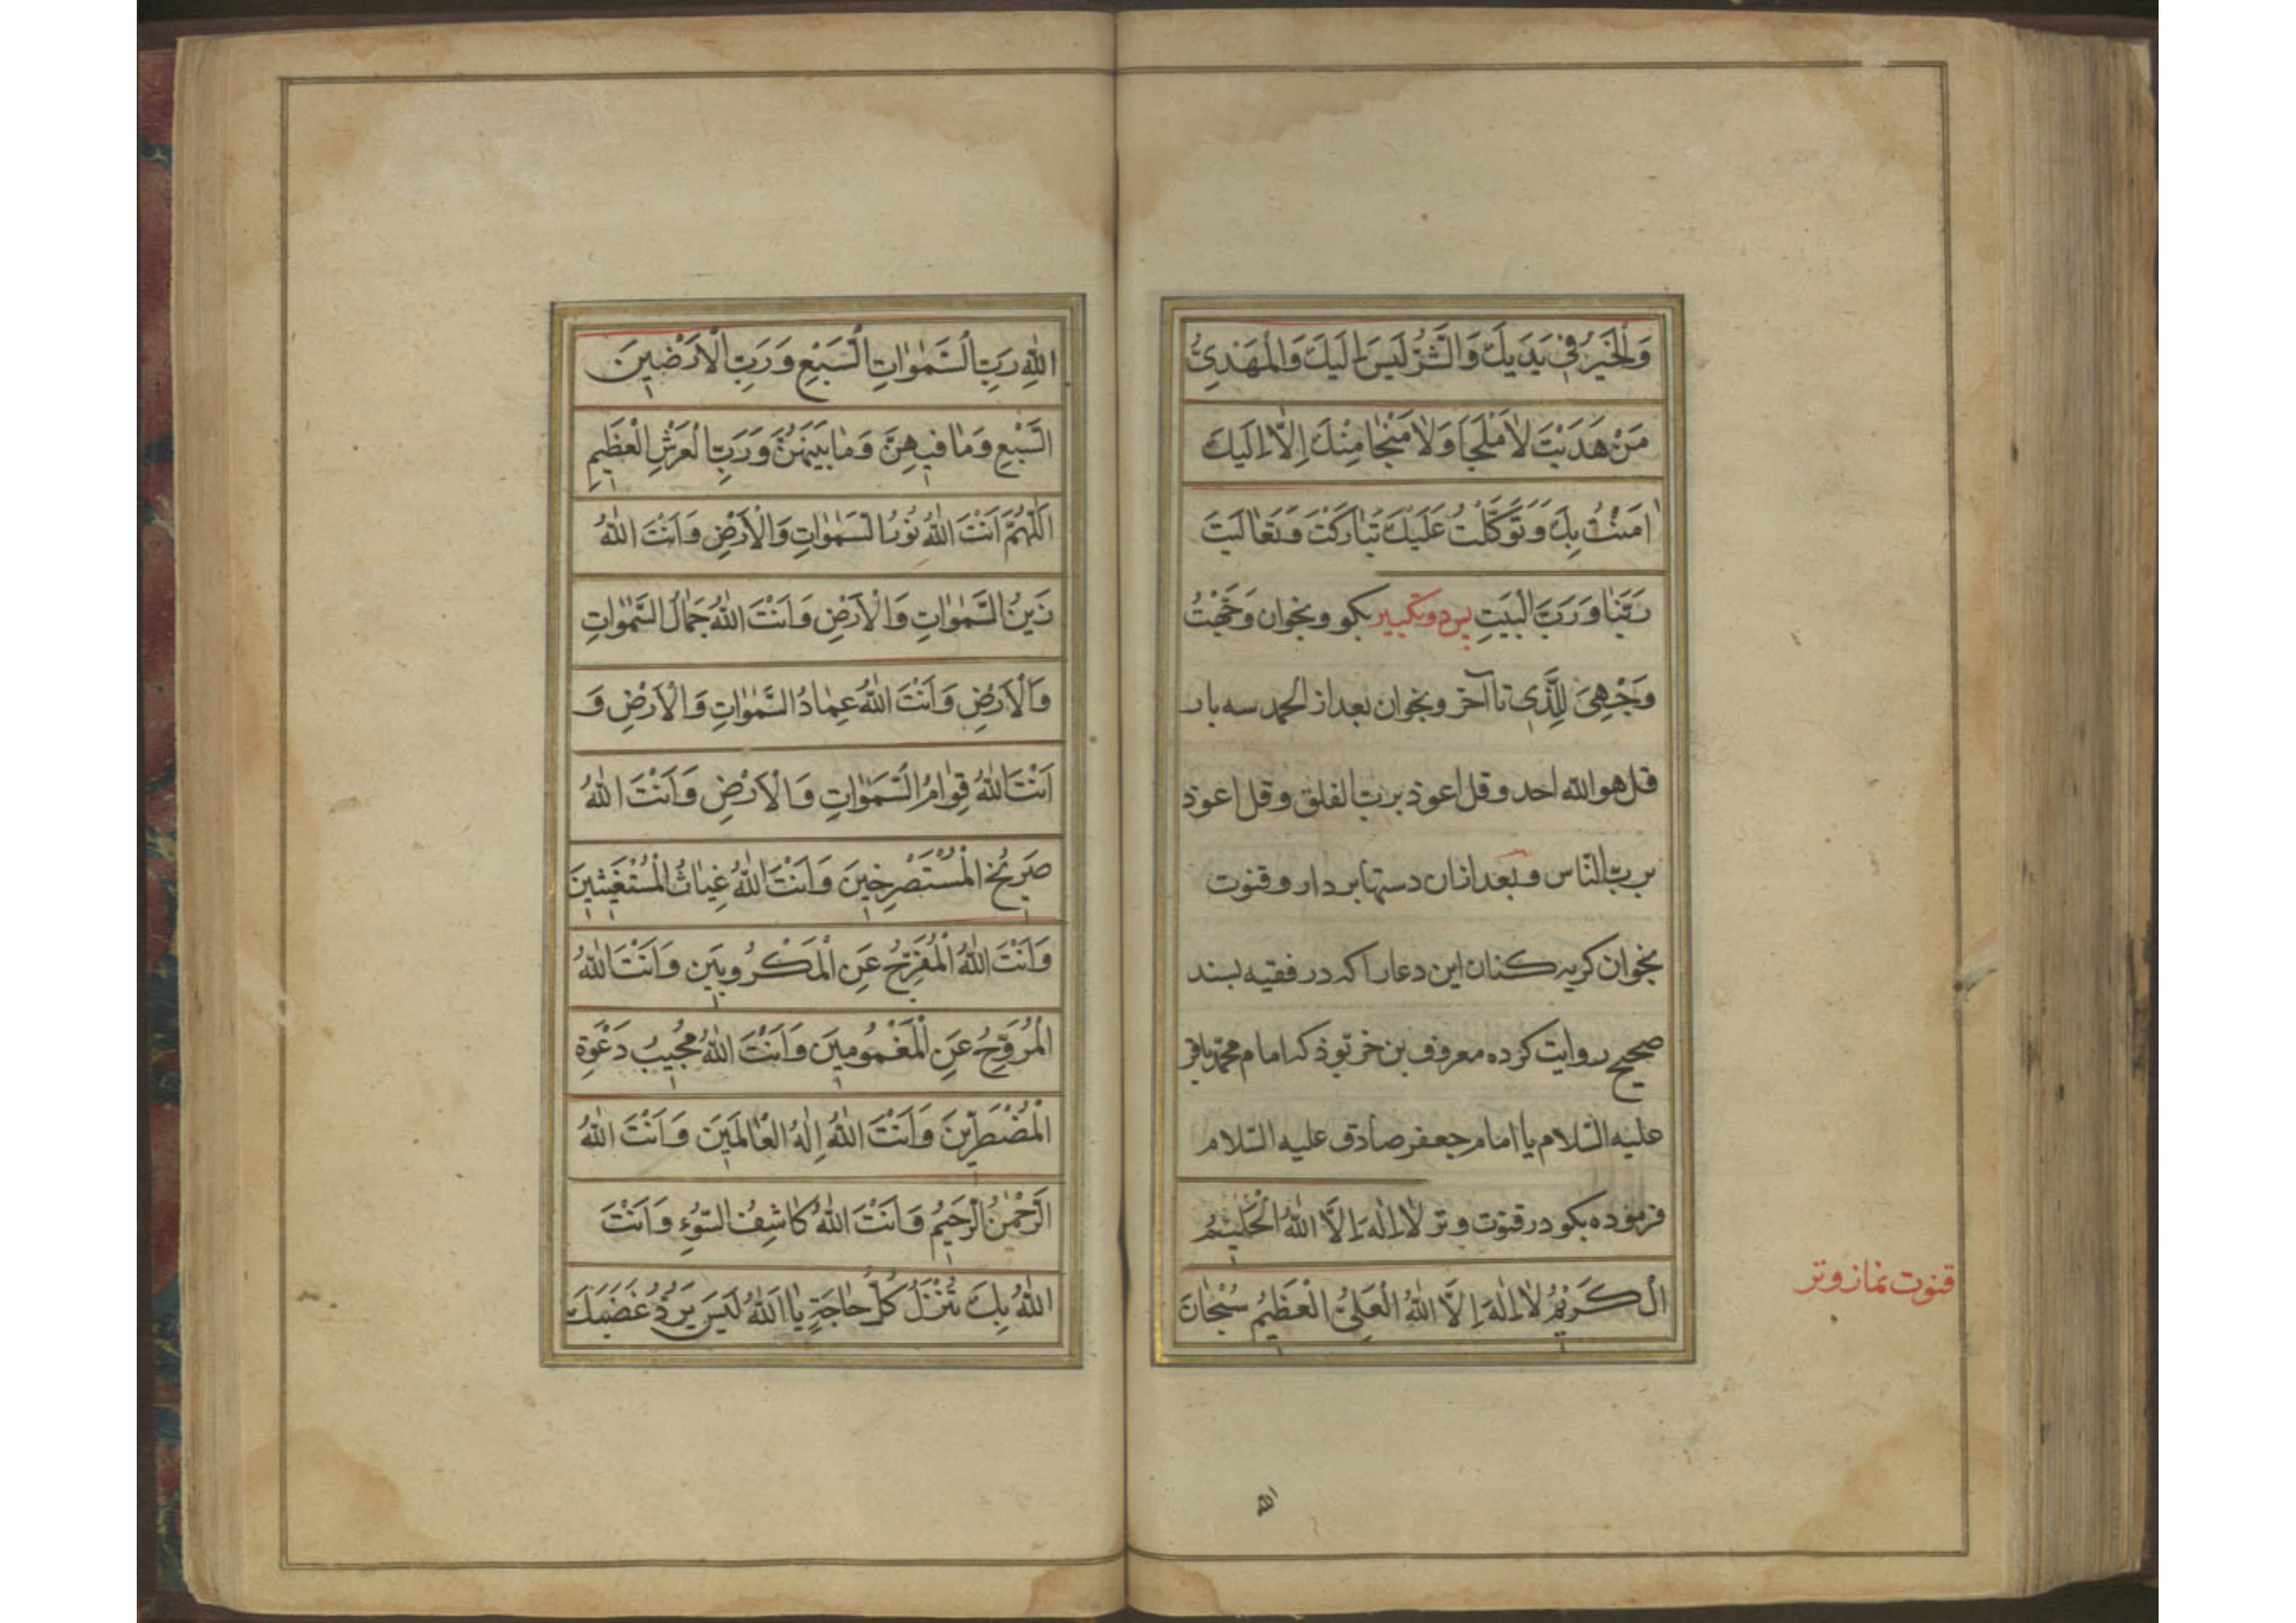 وَالْخَيْرُ فِي يَدَيْكَ وَالشَّرُّ لَيْسَ اِلَيْكَ وَالْمَهْدِيُّ
مَنْ هَدَيْتَ لاٰ مَلْجَأَ وَلاٰ مَنْجٰا مِنْكَ اِلاّٰ اِلَيْكَ
اٰمَنْتُ بِكَ وَتَوَكَّلْتُ عَلَيْكَ تَبٰارَكْتَ وَتَعٰالَيْتَ
رَبَّنٰا وَرَبَّ الْبَيْتِ پس دو تكبير بكو و بخوان وَجَّهْتُ
وَجْهِيَ لِلَّذي تا آخر و بخوان بعد از الحمد سه بار
قل هو الله احد و قل اعوذ برب الفلق و قل اعوذ
برب النّاس و بعد ازان دستها بردار و قنوت
بخوان كريه كنان اين دعا را كه در فقيه بسند
صحيح روايت كرده معروف بن خربوذ كه امام محمد باقر
عليه السّلام يا امام جعفر صادق عليه السّلام
فرموده بكو در قنوت وتر لاٰ اِلٰهَ اِلاَّ اللّٰهُ الْحَليمُ
الْكَريمُ لاٰ اِلٰهَ اِلاَّ اللّٰهُ الْعَلِيُّ الْعَظيمُ سُبْحٰانَ
قنوت نماز وتر
الله
اللّٰهِ رَبِّ السَّمٰوٰاتِ السَّبْعِ وَرَبِّ الْاَرَضينَ
السَّبْعِ وَمٰا فيهِنَّ وَمٰا بَيْنَهُنَّ وَرَبِّ الْعَرْشِ الْعَظيمِ
اَللّٰهُمَّ اَنْتَ اللّٰهُ نُورُ السَّمٰوٰاتِ وَالْاَرْضِ وَاَنْتَ اللّٰهُ
زَيْنُ السَّمٰوٰاتِ وَالْاَرْضِ وَاَنْتَ اللّٰهُ جَمٰالُ السَّمٰوٰاتِ
وَالْاَرْضِ وَاَنْتَ اللّٰهُ عِمٰادُ السَّمٰوٰاتِ وَالْاَرْضِ وَ
اَنْتَ اللّٰهُ قِوٰامُ السَّمٰوٰاتِ وَالْاَرْضِ وَاَنْتَ اللّٰهُ
صَريخُ الْمُسْتَصْرِخينَ وَاَنْتَ اللّٰهُ غِيٰاثُ الْمُسْتَغيثينَ
وَاَنْتَ اللّٰهُ الْمُفَرِّجُ عَنِ الْمَكْرُوبينَ وَاَنْتَ اللّٰهُ
الْمُرَوِّحُ عَنِ الْمَغْمُومينَ وَاَنْتَ اللّٰهُ مُجيبُ دَعْوَةِ
الْمُضْطَرّينَ وَاَنْتَ اللّٰهُ اِلٰهُ الْعٰالَمينَ وَاَنْتَ اللّٰهُ
الرَّحْمٰنُ الرَّحيمُ وَاَنْتَ اللّٰهُ كٰاشِفُ السُّوءِ وَاَنْتَ
اللّٰهُ بِكَ تُنْزَلُ كُلُّ حٰاجَةٍ يٰا اَللّٰهُ لَيْسَ يَرُدُّ غَضَبَكَ